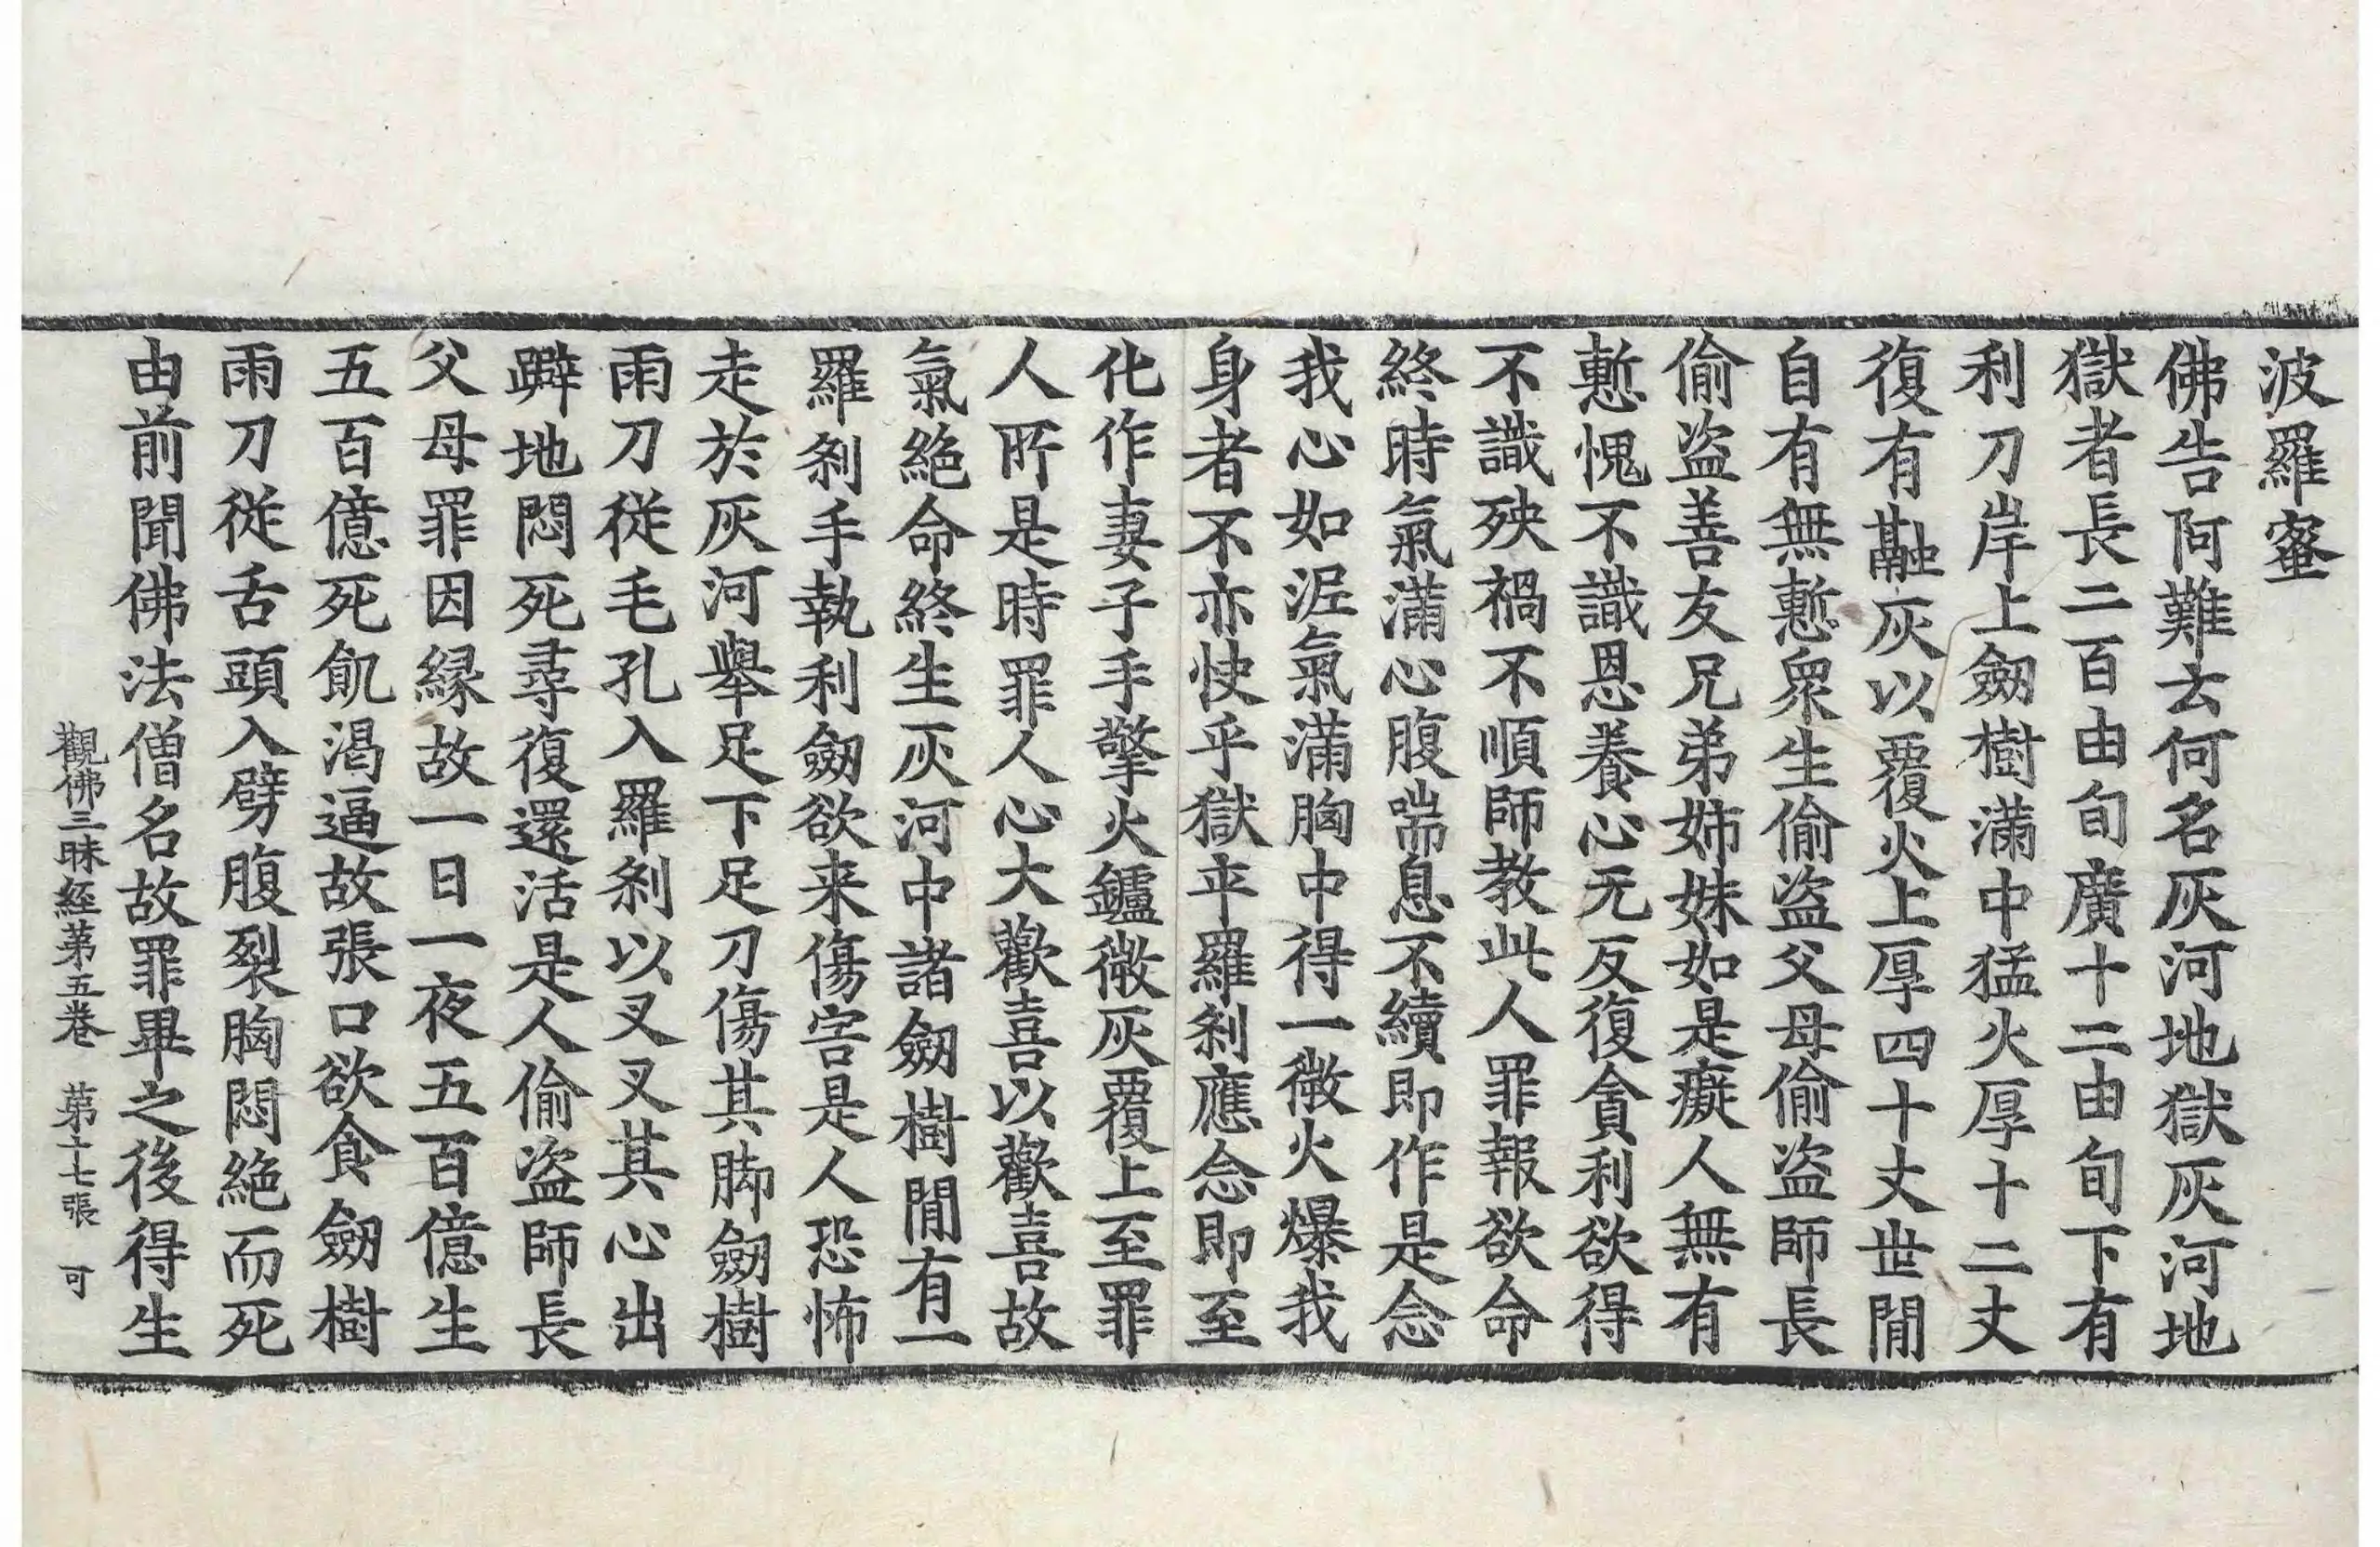 波羅蜜
佛告阿難云何名灰河地獄灰河地
獄者長二百由旬廣十二由旬下有
利刀岸上劒樹滿中猛火厚十二丈
復有融灰以覆火上厚四十丈世閒
自有無慙衆生偷盗父母偷盗師長
偷盗善友兄弟姉妹如是癡人無有
慙愧不識恩養心无反復貪利欲得
不識殃禍不順師教此人罪報欲命
終時氣滿心腹喘息不續即作是念
我心如泥氣滿胸中得一微火爆我
身者不亦快乎獄卒羅刹應念即至
化作妻子手擎火鑪微灰覆上至罪
人所是時罪人心大歡喜以歡喜故
氣絶命終生灰河中諸劒樹閒有一
羅刹手執利劒欲来傷害是人恐怖
走於灰河舉足下足刀傷其脚劒樹
雨刀從毛孔入羅刹以叉叉其心出
躃地悶死尋復還活是人偷盗師長
父母罪因縁故一日一夜五百億生
五百億死飢渇逼故張口欲食劒樹
雨刀從舌頭入劈腹裂胸悶絶而死
由前聞佛法僧名故罪畢之後得生
觀佛三昧經第五卷 第十七張 可